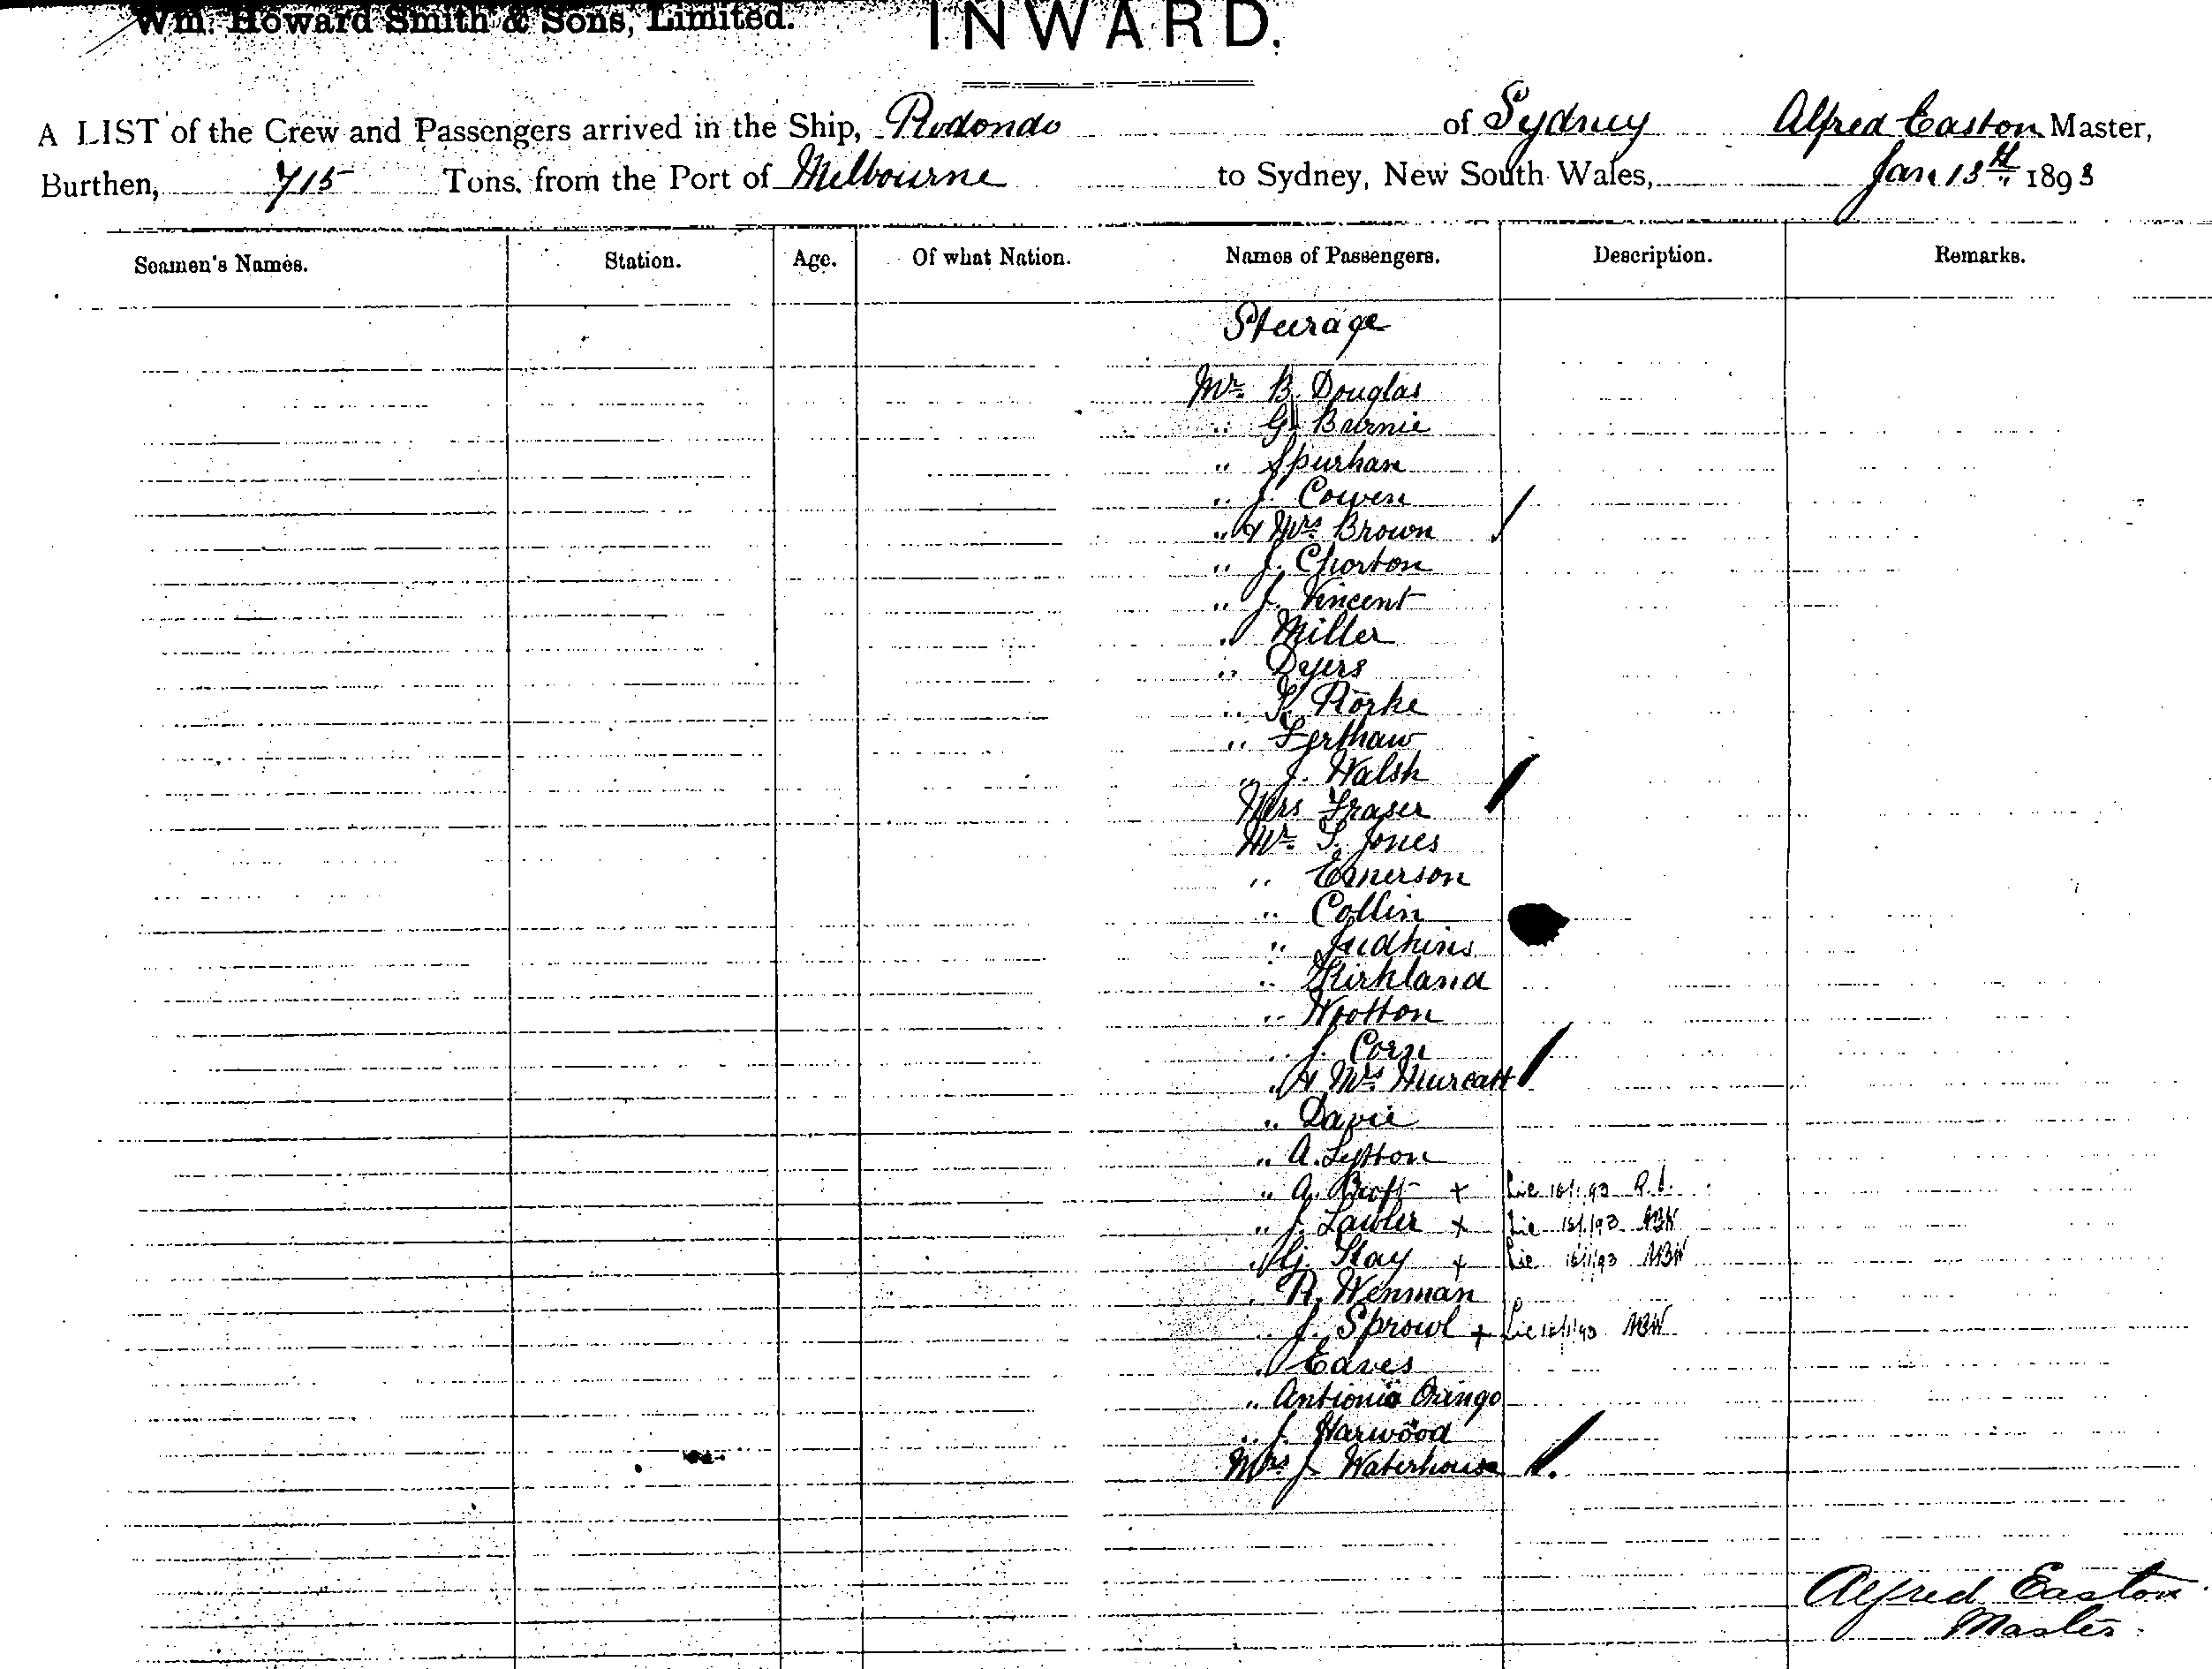 Wm. Howard Smith & Sons, Limited.
INWARD.
A LIST of the Crew and Passengers arrived in the Ship, Rodondo of Sydney Alfred Easton Master,
Burthen, 715 Tons, from the Port of Melbourne to Sydney, New South Wales, Jan 13th 1893
Seamen's Names. Station. Age. Of what Nation. Names of Passengers. Description. Remarks.
Steerage
Mr. B. Douglas
" G. Burnie
" Spurhan
" J. Cowen
" & Mrs. Brown
" J. Chorton
" J. Vincent
" Miller
" Dyers
" Rorke
" 
" J. Walsh
Mrs Fraser
Mr. Jones
" Emerson
" Collin
" Judkins
" Kirkland
" Wootton
" J. Corn
" & Mrs. Murcatt
" Davie
" A. Lytton
" A. + Lie
" J. Lawler + Lie
" G. Stay + Lie
" R. Wenman
" J. Sprowl + Lie
" Eaves
" Antionio Oringo
" J. Harwood
Mrs J. Waterhouse
Alfred Easton
Master.